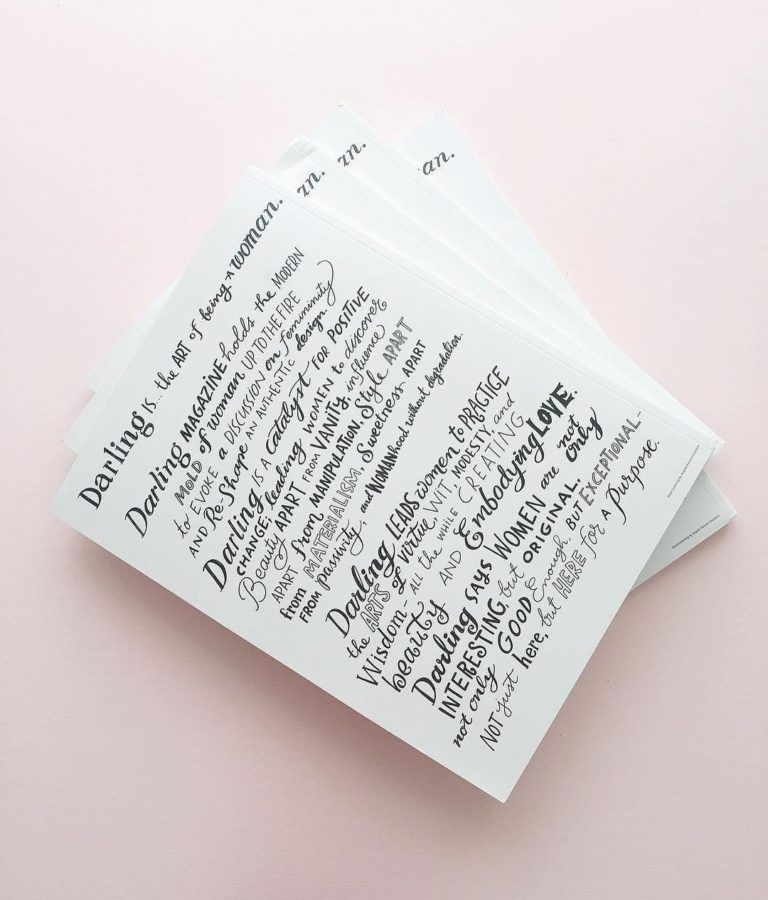 Darling is... the ART of being a woman.
Darling MAGAZINE holds the MODERN
MOLD of woman UP TO THE FIRE
to EVOKE a DISCUSSION on Femininity
AND Re-Shape AN AUTHENTIC design.
Darling IS A Catalyst FOR POSITIVE
CHANGE; leading WOMEN to discover
Beauty APART FROM VANITY, influence
APART from MANIPULATION, Style APART
from MATERIALISM, Sweetness APART
FROM passivity, and WOMANhood without degradation.
Darling LEADS women to PRACTICE
the ARTS of virtue, WIT, MODESTY, and
Wisdom- ALL the WHILE CREATING
beauty AND Embodying LOVE.
Darling SAYS WOMEN are not only
INTERESTING, but ORIGINAL,
not only GOOD enough, BUT EXCEPTIONAL-
NOT just here, but HERE for a Purpose.
an.
an.
an.